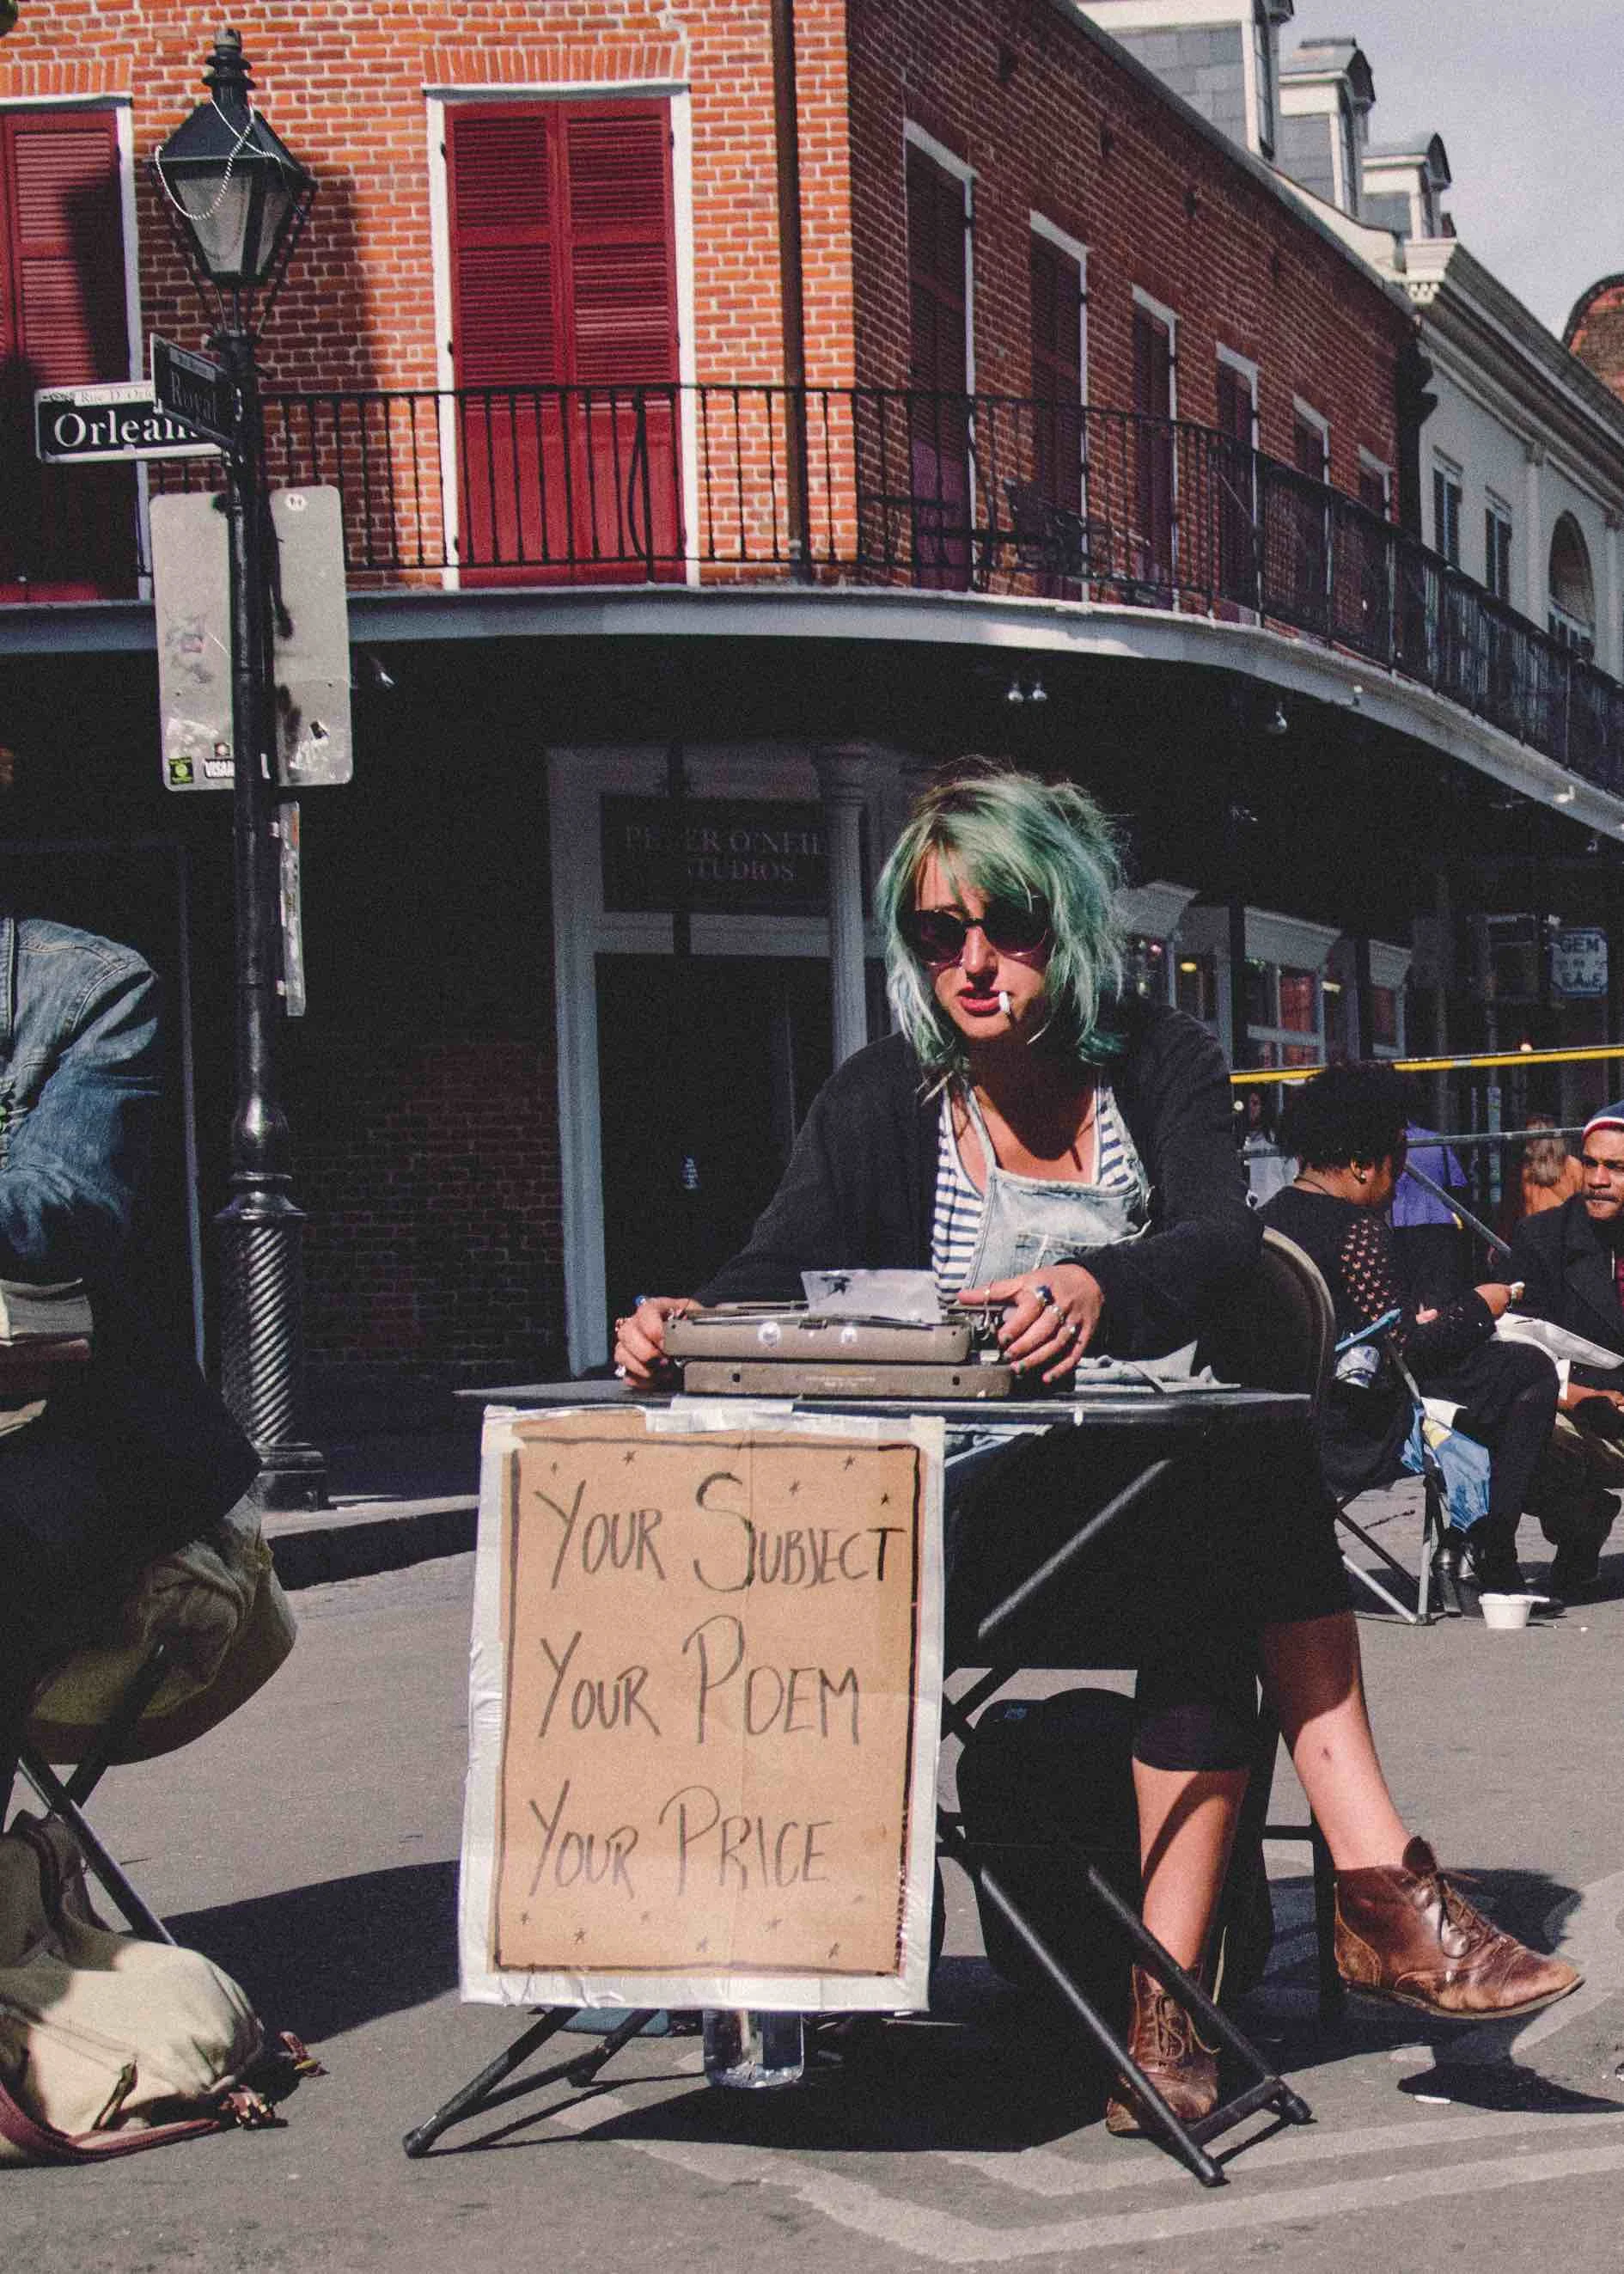 Orleans
Royal
PETER O'NEIL
STUDIOS
GEM
SALE
YOUR SUBJECT
YOUR POEM
YOUR PRICE